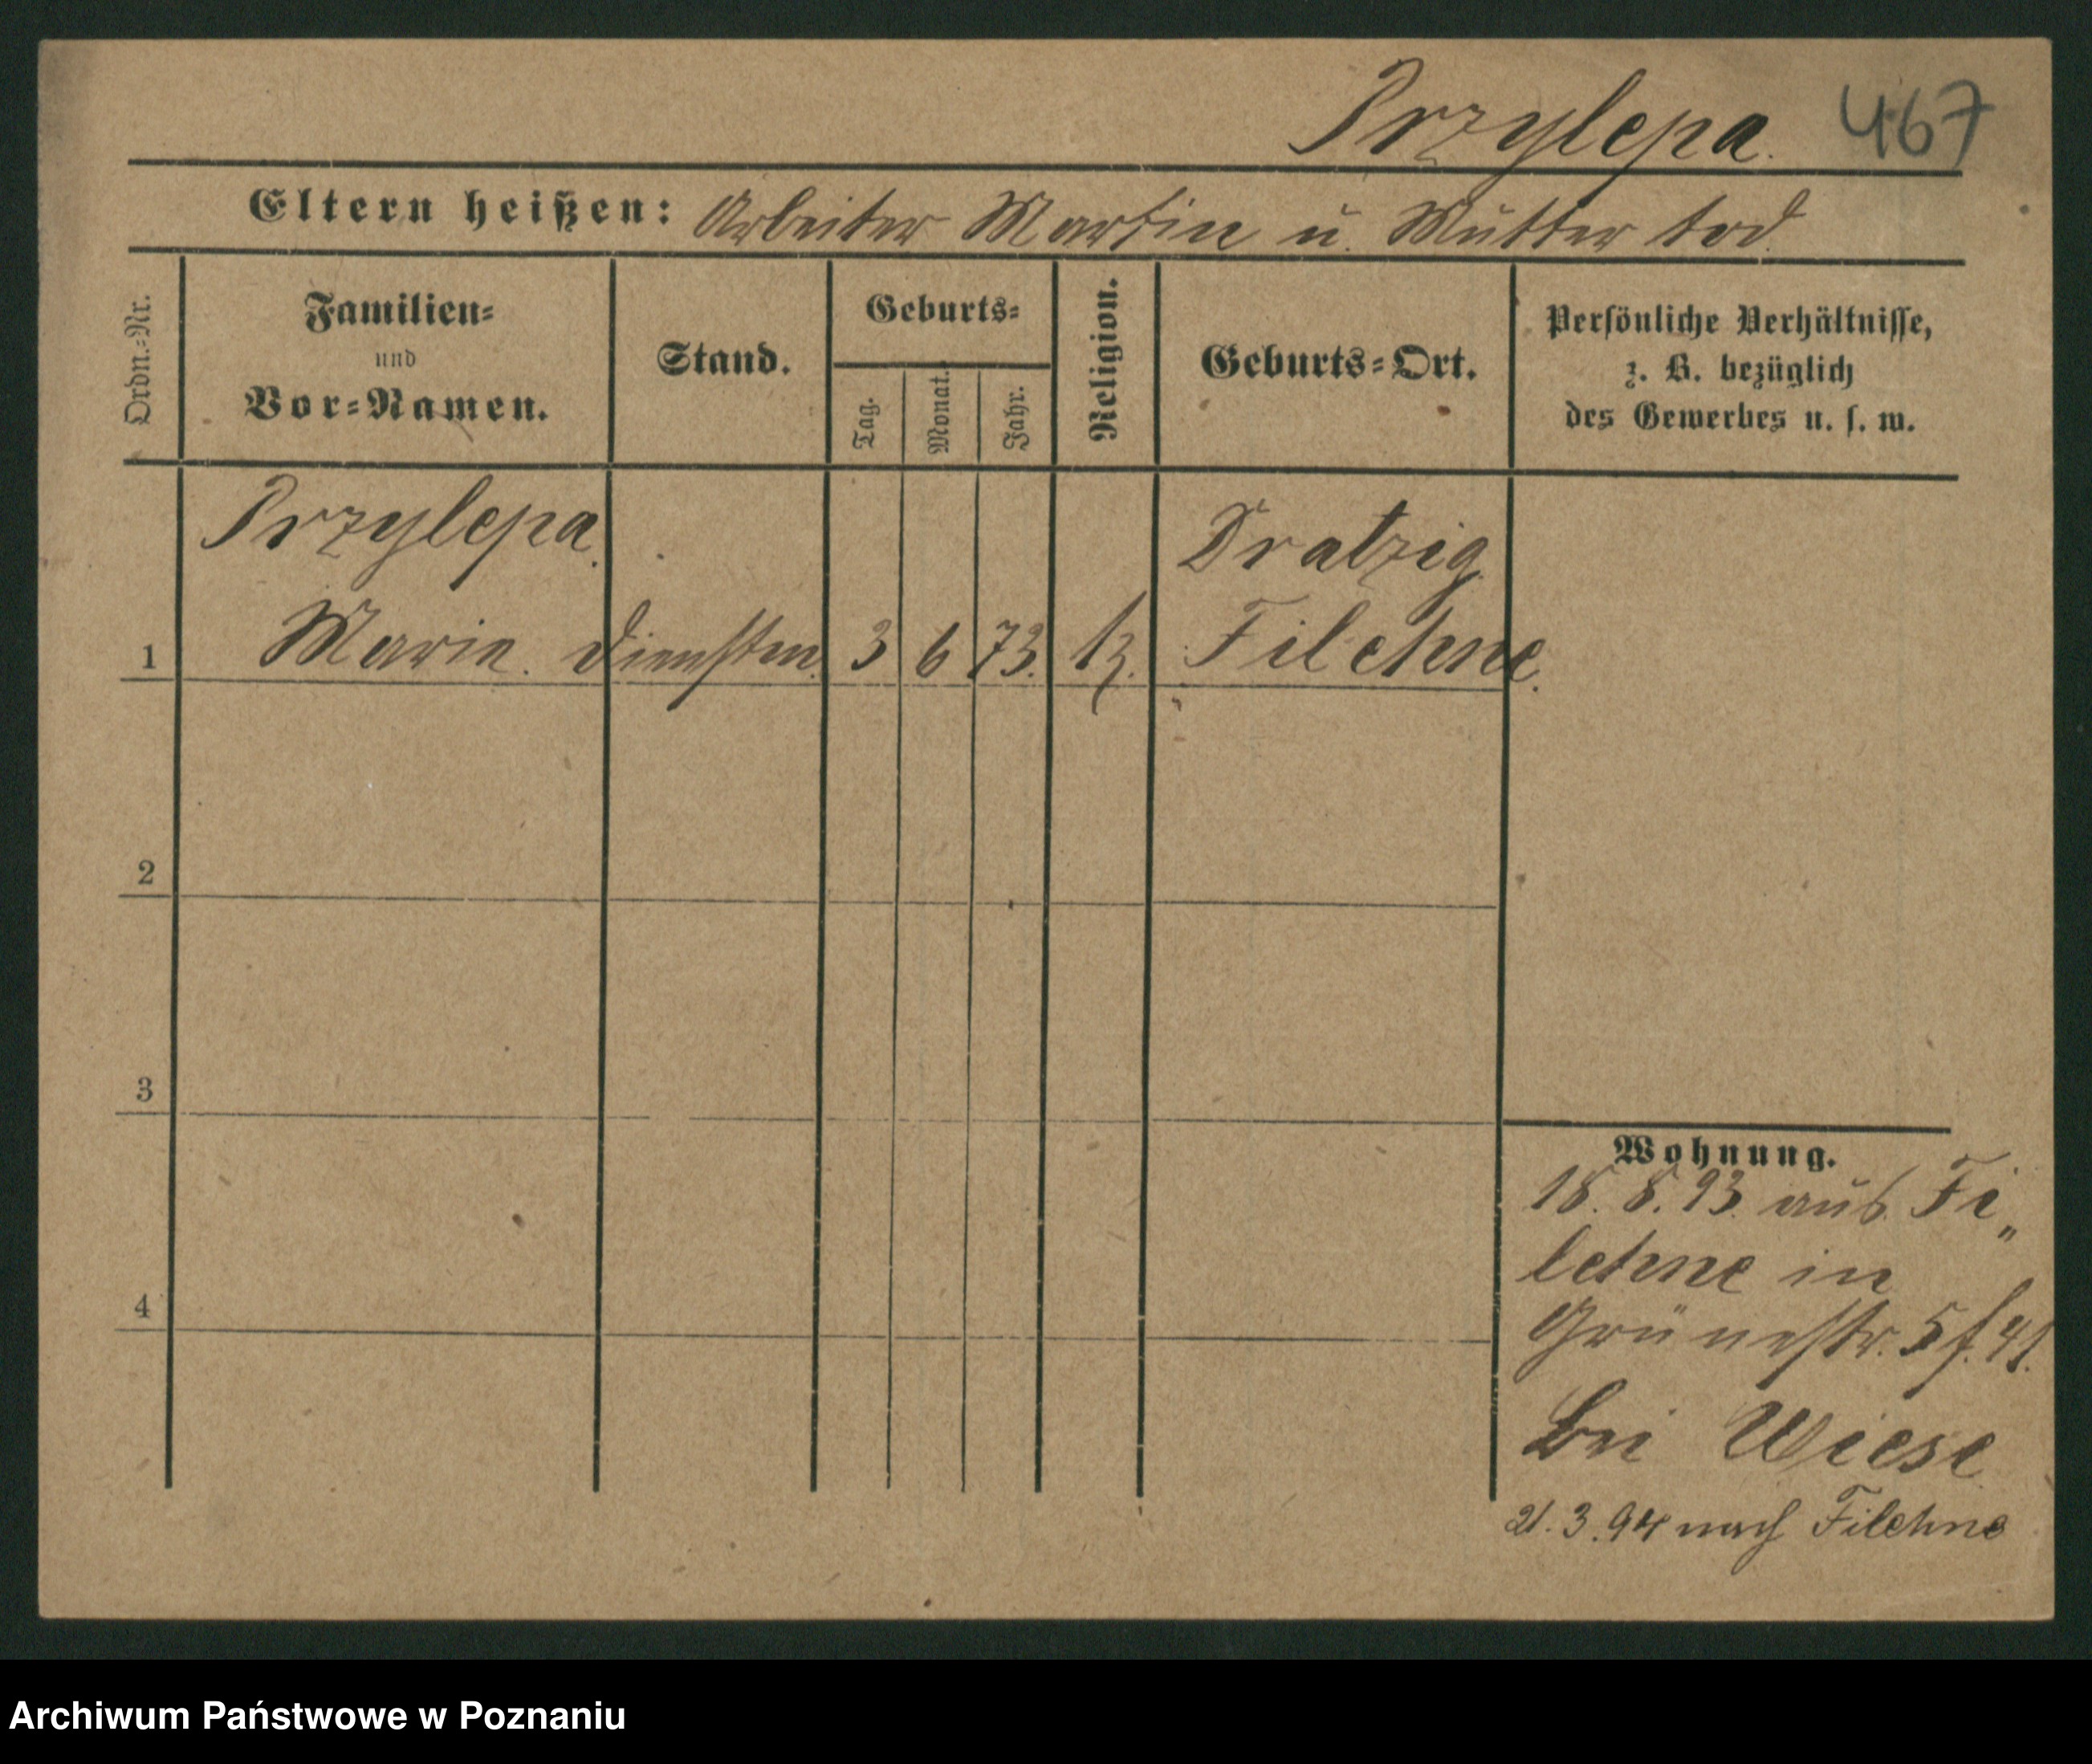 Przylepa. 467
Eltern heißen: Arbeiter Martin u. Mutter tod.
Ordn.-Nr.
Familien-
und
Vor-Namen.
Stand.
Geburts-
Tag.
Monat.
Jahr.
Religion.
Geburts-Ort.
Persönliche Verhältnisse,
z. B. bezüglich
des Gewerbes u. s. w.
Przylepa. Dratzig
1 Marie. Dienstm. 3 6 73. k. Filehne.
2
3
4
Wohnung.
18. 8. 93. aus Fi„
lehne in
Grünestr. 5
bei Wiese
21. 3. 94 nach Filehne
Archiwum Państwowe w Poznaniu